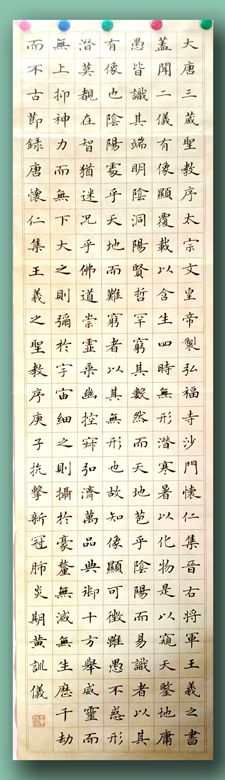 大唐三藏聖教序太宗文皇帝製弘福寺沙門懷仁集晉右將軍王羲之書
蓋聞二儀有像顯覆載以含生四時無形潛寒暑以化物是以窺天鑒地庸
愚皆識其端明陰洞陽賢哲罕窮其數然而天地苞乎陰陽而易識者以其
有像也陰陽處乎天地而難窮者以其無形也故知像顯可徵雖愚不惑形
潛莫覩在智猶迷況乎佛道崇虛乘幽控寂弘濟萬品典御十方舉威靈而
無上抑神力而無下大之則彌於宇宙細之則攝於豪釐無滅無生歷千劫
而不古節錄唐懷仁集王羲之聖教序庚子抗擊新冠肺炎期黃訓儀